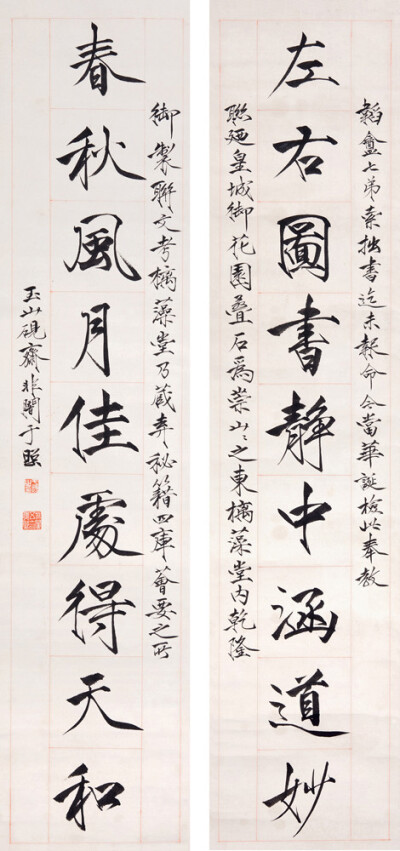 韜盦七弟索拙書迄未報命今當華誕檢此奉教
左右圖書靜中涵道妙
聯廼皇城御花園疊石爲崇山〻之東摛藻堂内乾隆
御製聯文考摛藻堂乃藏弆秘籍四庫薈要之所
春秋風月佳處得天和
玉山硯齋非闇于照